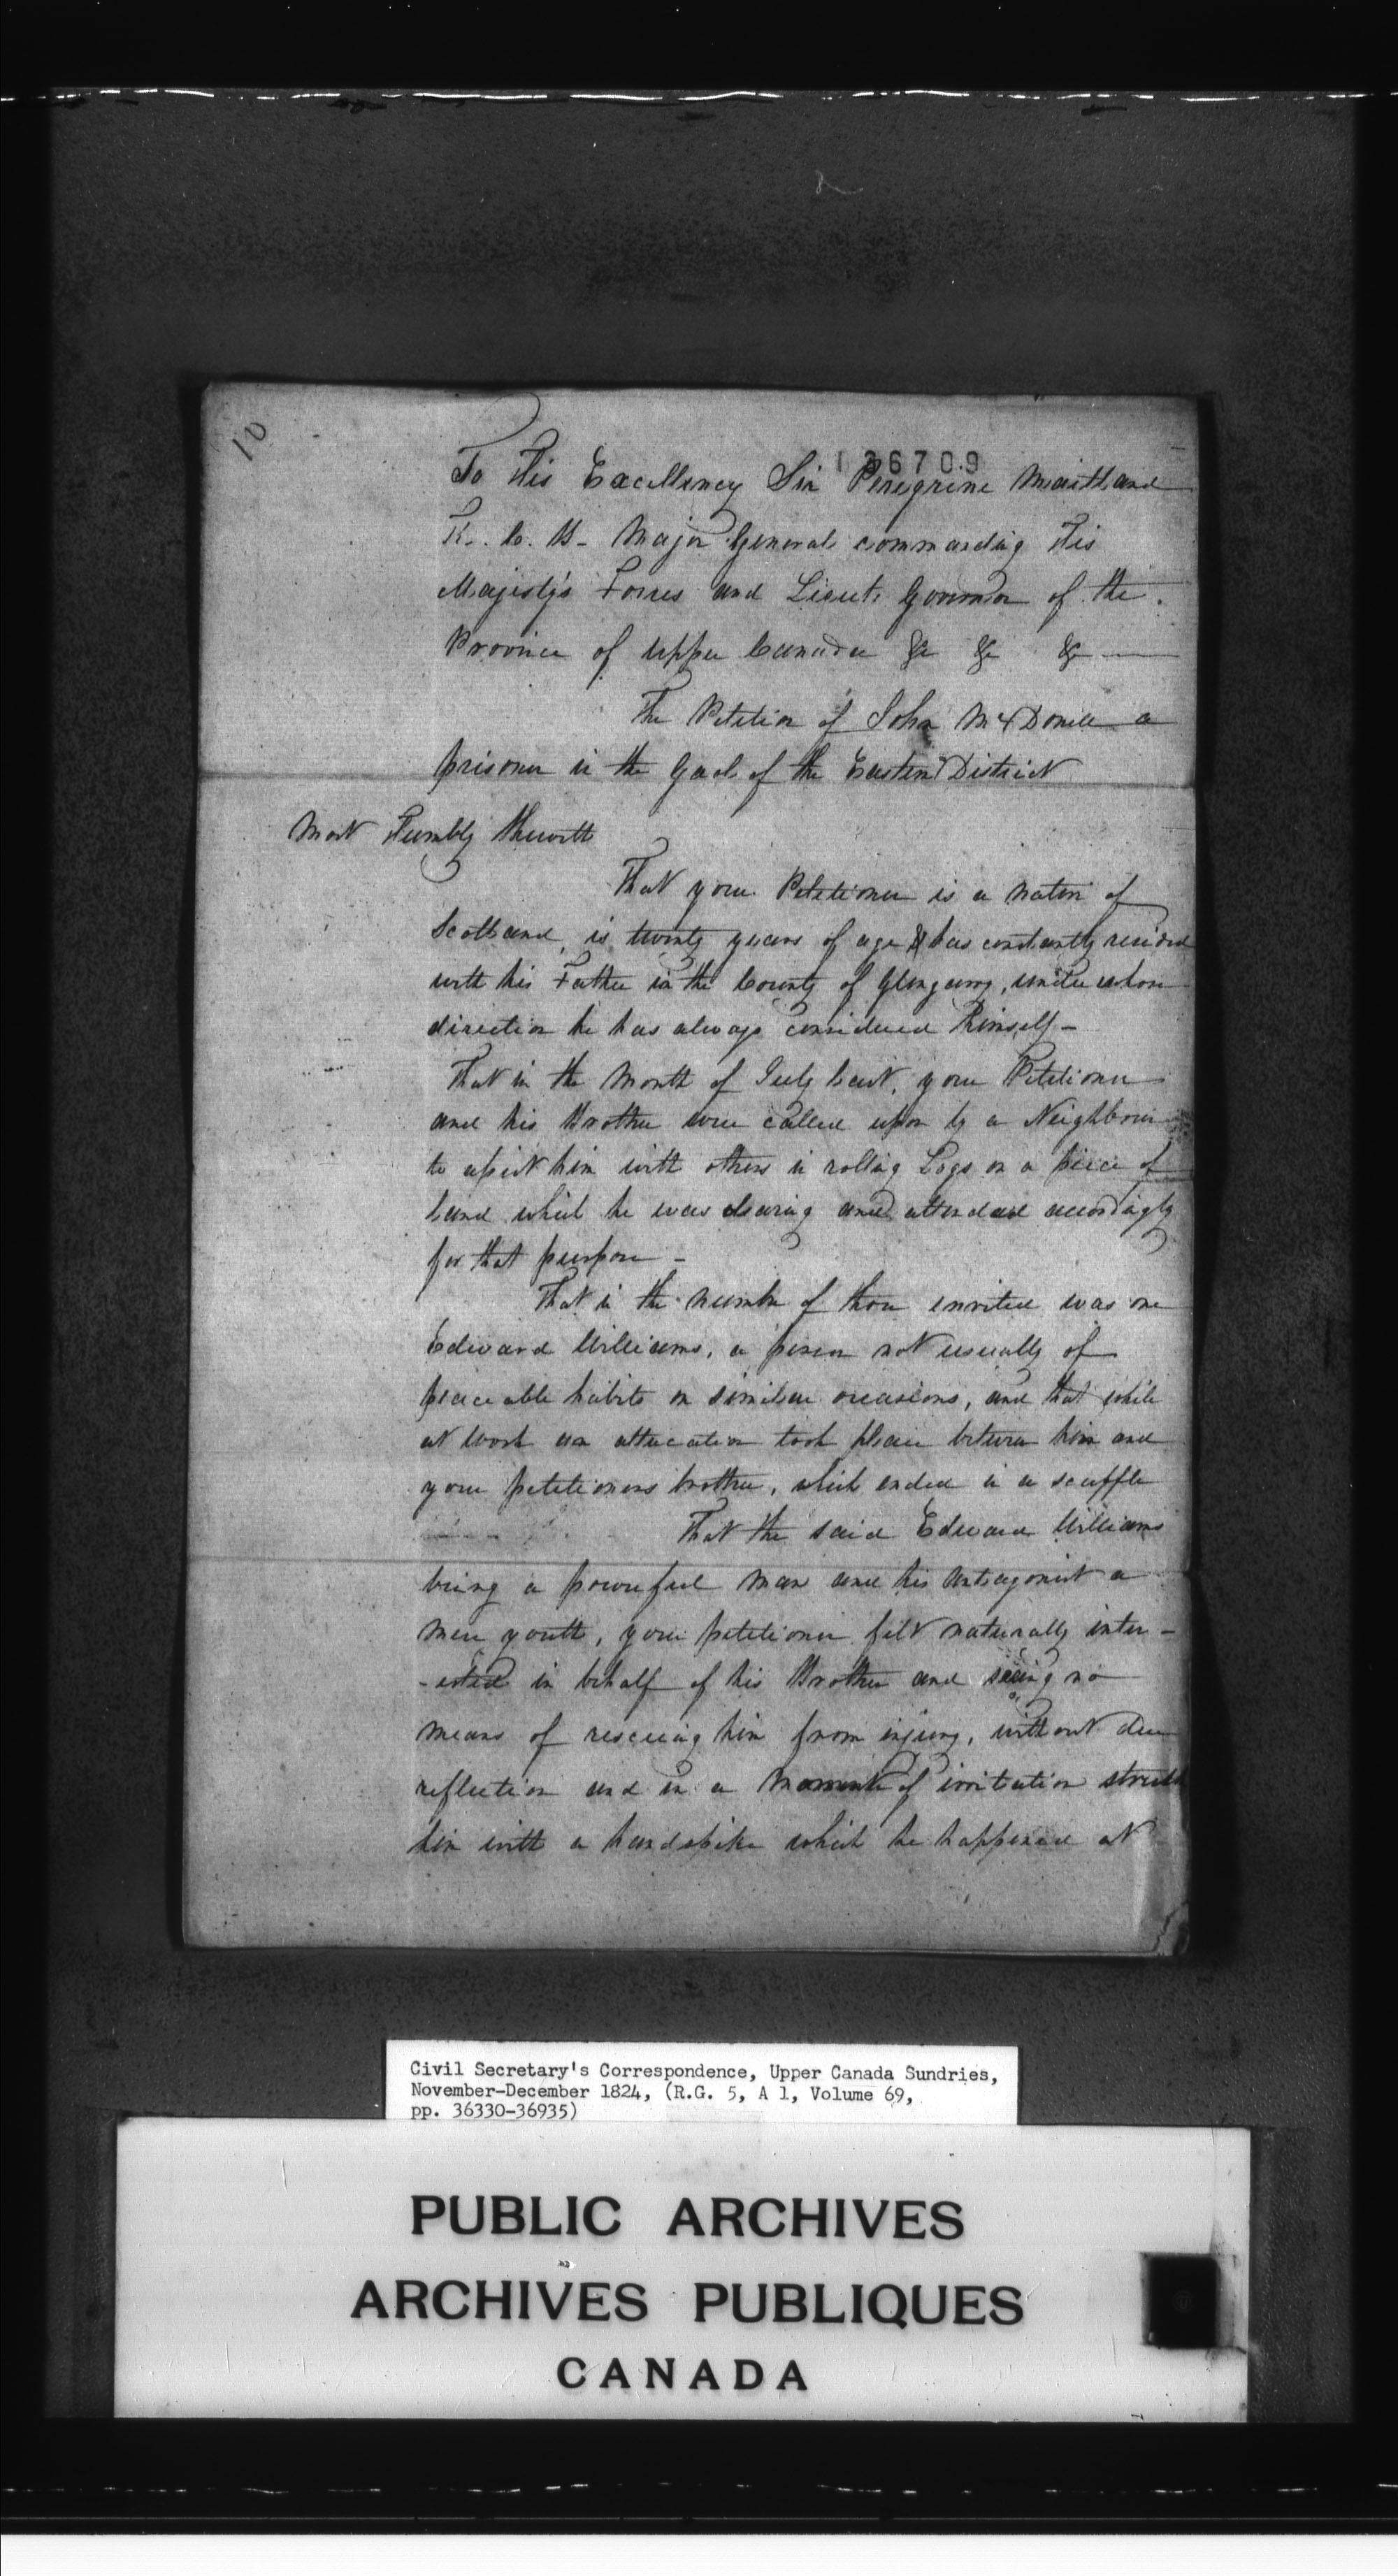 10
136709
To His Excellency Sir Peregrine Maitland
K. C. B- Major General commanding His
Majesty's Forces and Lieut. Governor of the
Province of Upper Canada &c &c &c
The Petition of John McDonell a
prisoner in the Gaol of the Eastern District
Most Humbly Sheweth
That your Petitioner is a native of
Scotland, is twenty years of age & has constantly resided
with his Father in the County of Glengarry, under whose
direction he has always considered himself-
That in the Month of July last, your Petitioner
and his Brother were called upon by a Neighbour
to assist him with others in rolling Logs on a piece of
land which he was clearing and attended accordingly
for that purpose -
That in the number of those invited was one
Edward Williams, a person not usually of
peaceable habits on similar occasions, and that while
at work an altercation took place between him and
your petitioners brother, which ended in a scuffle
That the said Edward Williams
being a powerful man and his Antagonist a
mere youth, your petitioner felt naturally inter-
-ested in behalf of his Brother and seeing no
means of rescuing him from injury, without due
reflection and in a moment of irritation struck
him with a handspike which he happened at
Civil Secretary's Correspondence, Upper Canada Sundries,
November-December 1824, (R.G. 5, A 1, Volume 69,
pp. 36330-36935)
PUBLIC ARCHIVES
ARCHIVES PUBLIQUES
CANADA